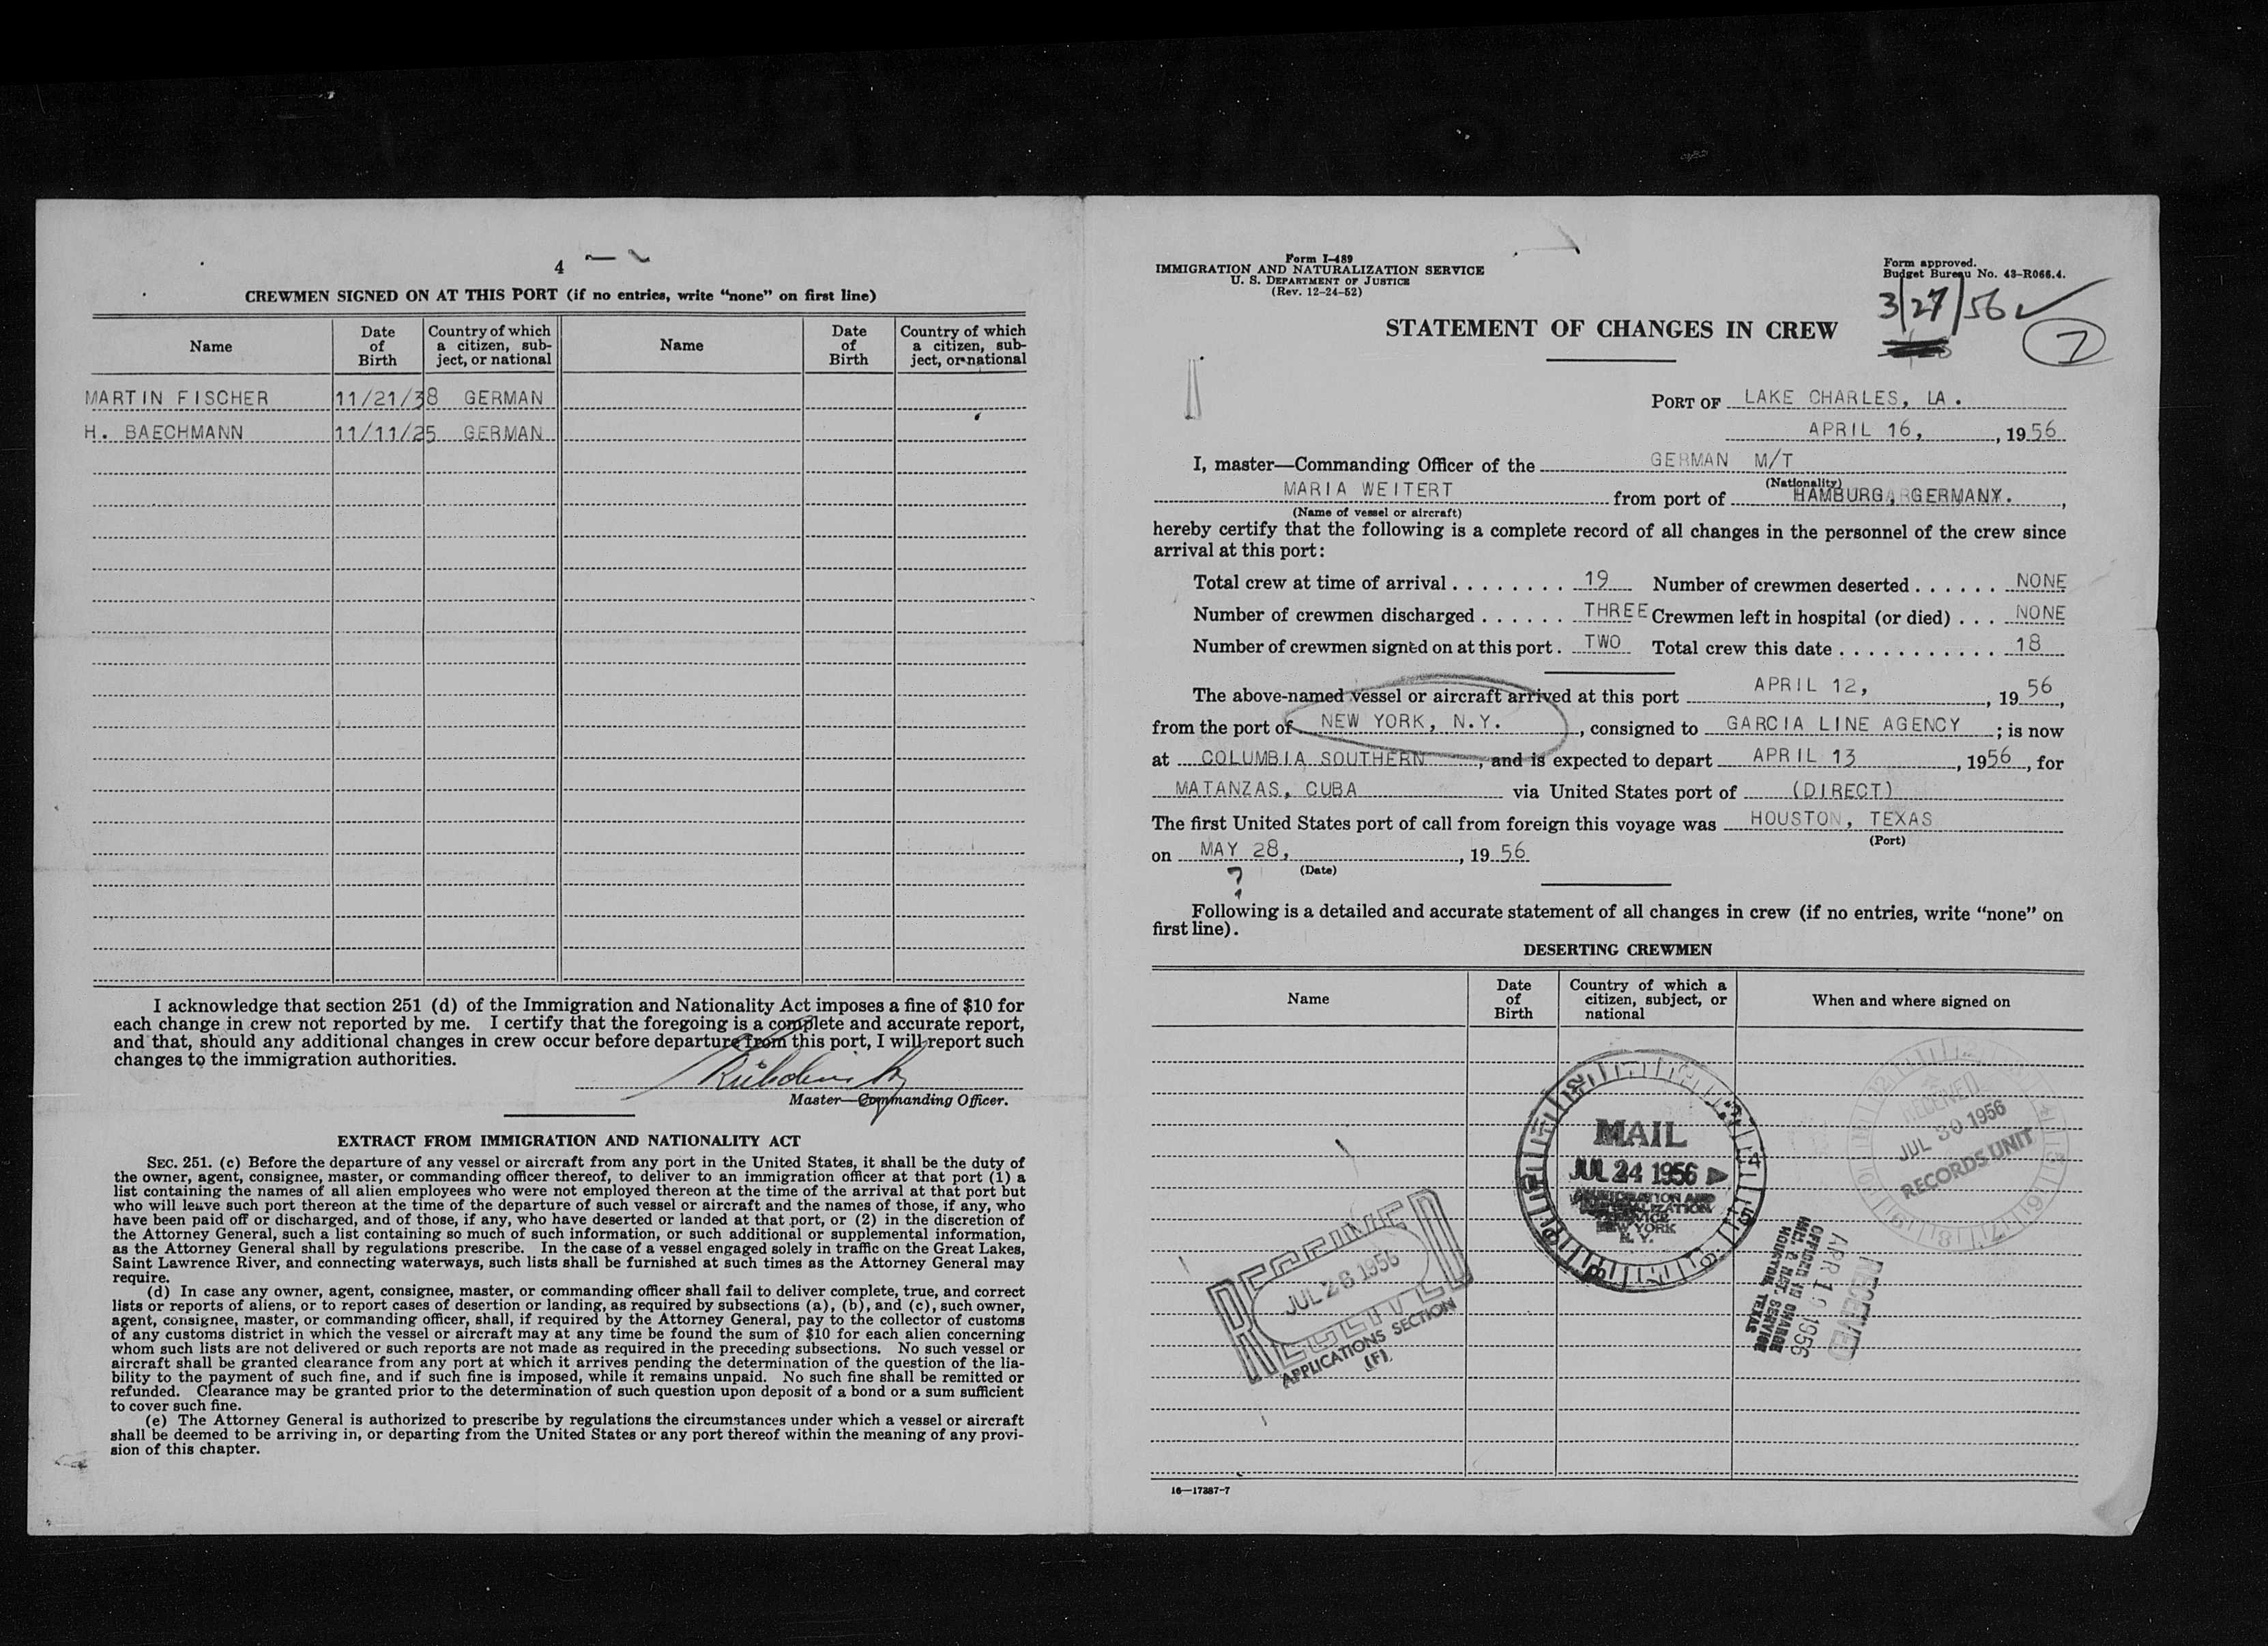 4
CREWMEN SIGNED ON AT THIS PORT (if no entries, write "none" on first line)
Name Date of Birth Country of which a citizen, subject, or national Name Date of Birth Country of which a citizen, subject, or national
MARTIN FISCHER 11/21/38 GERMAN
H. BAECHMANN 11/11/25 GERMAN
I acknowledge that section 251 (d) of the Immigration and Nationality Act imposes a fine of $10 for
each change in crew not reported by me. I certify that the foregoing is a complete and accurate report,
and that, should any additional changes in crew occur before departure from this port, I will report such
changes to the immigration authorities.
Master—Commanding Officer.
EXTRACT FROM IMMIGRATION AND NATIONALITY ACT
SEC. 251. (c) Before the departure of any vessel or aircraft from any port in the United States, it shall be the duty of
the owner, agent, consignee, master, or commanding officer thereof, to deliver to an immigration officer at that port (1) a
list containing the names of all alien employees who were not employed thereon at the time of the arrival at that port but
who will leave such port thereon at the time of the departure of such vessel or aircraft and the names of those, if any, who
have been paid off or discharged, and of those, if any, who have deserted or landed at that port, or (2) in the discretion of
the Attorney General, such a list containing so much of such information, or such additional or supplemental information,
as the Attorney General shall by regulations prescribe. In the case of a vessel engaged solely in traffic on the Great Lakes,
Saint Lawrence River, and connecting waterways, such lists shall be furnished at such times as the Attorney General may
require.
(d) In case any owner, agent, consignee, master, or commanding officer shall fail to deliver complete, true, and correct
lists or reports of aliens, or to report cases of desertion or landing, as required by subsections (a), (b), and (c), such owner,
agent, consignee, master, or commanding officer, shall, if required by the Attorney General, pay to the collector of customs
of any customs district in which the vessel or aircraft may at any time be found the sum of $10 for each alien concerning
whom such lists are not delivered or such reports are not made as required in the preceding subsections. No such vessel or
aircraft shall be granted clearance from any port at which it arrives pending the determination of the question of the lia-
bility to the payment of such fine, and if such fine is imposed, while it remains unpaid. No such fine shall be remitted or
refunded. Clearance may be granted prior to the determination of such question upon deposit of a bond or a sum sufficient
to cover such fine.
(e) The Attorney General is authorized to prescribe by regulations the circumstances under which a vessel or aircraft
shall be deemed to be arriving in, or departing from the United States or any port thereof within the meaning of any provi-
sion of this chapter.
Form I-489
IMMIGRATION AND NATURALIZATION SERVICE
U. S. DEPARTMENT OF JUSTICE
(Rev. 12-24-52)
Form approved.
Budget Bureau No. 43-R066.4.
3/27/56
STATEMENT OF CHANGES IN CREW
PORT OF LAKE CHARLES, LA.
APRIL 16, , 1956
I, master—Commanding Officer of the GERMAN M/T
(Nationality)
MARIA WEITERT from port of HAMBURG, GERMANY. ,
(Name of vessel or aircraft)
hereby certify that the following is a complete record of all changes in the personnel of the crew since
arrival at this port:
Total crew at time of arrival . . . . . . . . 19 Number of crewmen deserted . . . . . . NONE
Number of crewmen discharged . . . . . . THREE Crewmen left in hospital (or died) . . . NONE
Number of crewmen signed on at this port . TWO Total crew this date . . . . . . . . . . . . 18
The above-named vessel or aircraft arrived at this port APRIL 12, , 1956,
from the port of NEW YORK, N.Y. , consigned to GARCIA LINE AGENCY ; is now
at COLUMBIA SOUTHERN , and is expected to depart APRIL 13 , 1956, for
MATANZAS, CUBA via United States port of (DIRECT)
The first United States port of call from foreign this voyage was HOUSTON, TEXAS
(Port)
on MAY 28, , 1956
(Date)
?
Following is a detailed and accurate statement of all changes in crew (if no entries, write "none" on
first line).
DESERTING CREWMEN
Name Date of Birth Country of which a citizen, subject, or national When and where signed on
MAIL
JUL 24 1956
IMMIGRATION AND
NATURALIZATION
SERVICE
NEW YORK
N. Y.
RECEIVED
JUL 30 1956
RECORDS UNIT
RECEIVED
JUL 26 1956
APPLICATIONS SECTION
(F)
RECEIVED
APR 19 1956
OFFICER IN CHARGE
IMM. & NAT. SERVICE
HOUSTON, TEXAS
16—17387-7